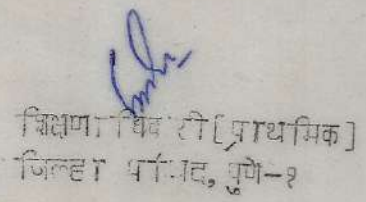 शिक्षणाधिकारी [प्राथमिक]
जिल्हा परिषद, पुणे-१